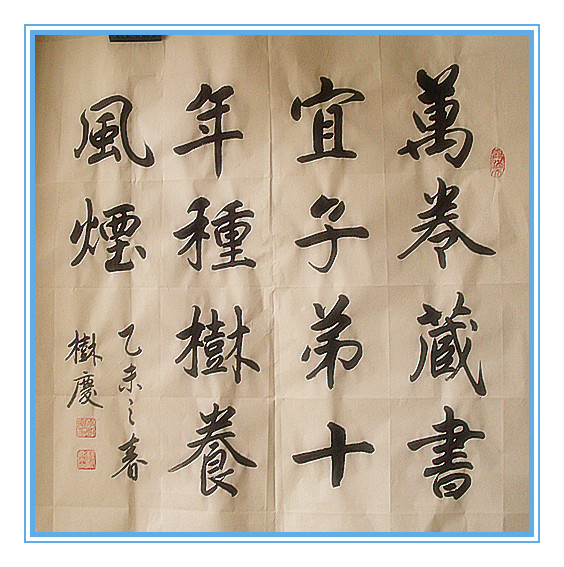 萬卷藏書
宜子弟十
年種樹養
風煙
乙未之春
樹慶